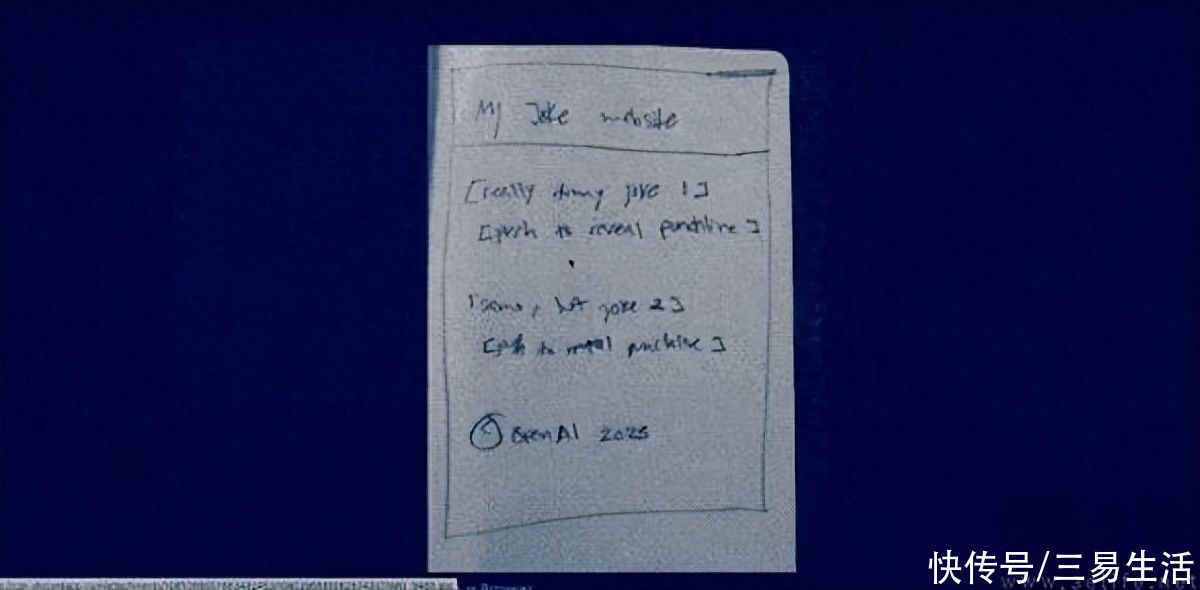 My Joke website
[really funny joke 1]
[push to reveal punchline]
[same, but joke 2]
[push to reveal punchline]
© OpenAI 2023
快传号/三易生活